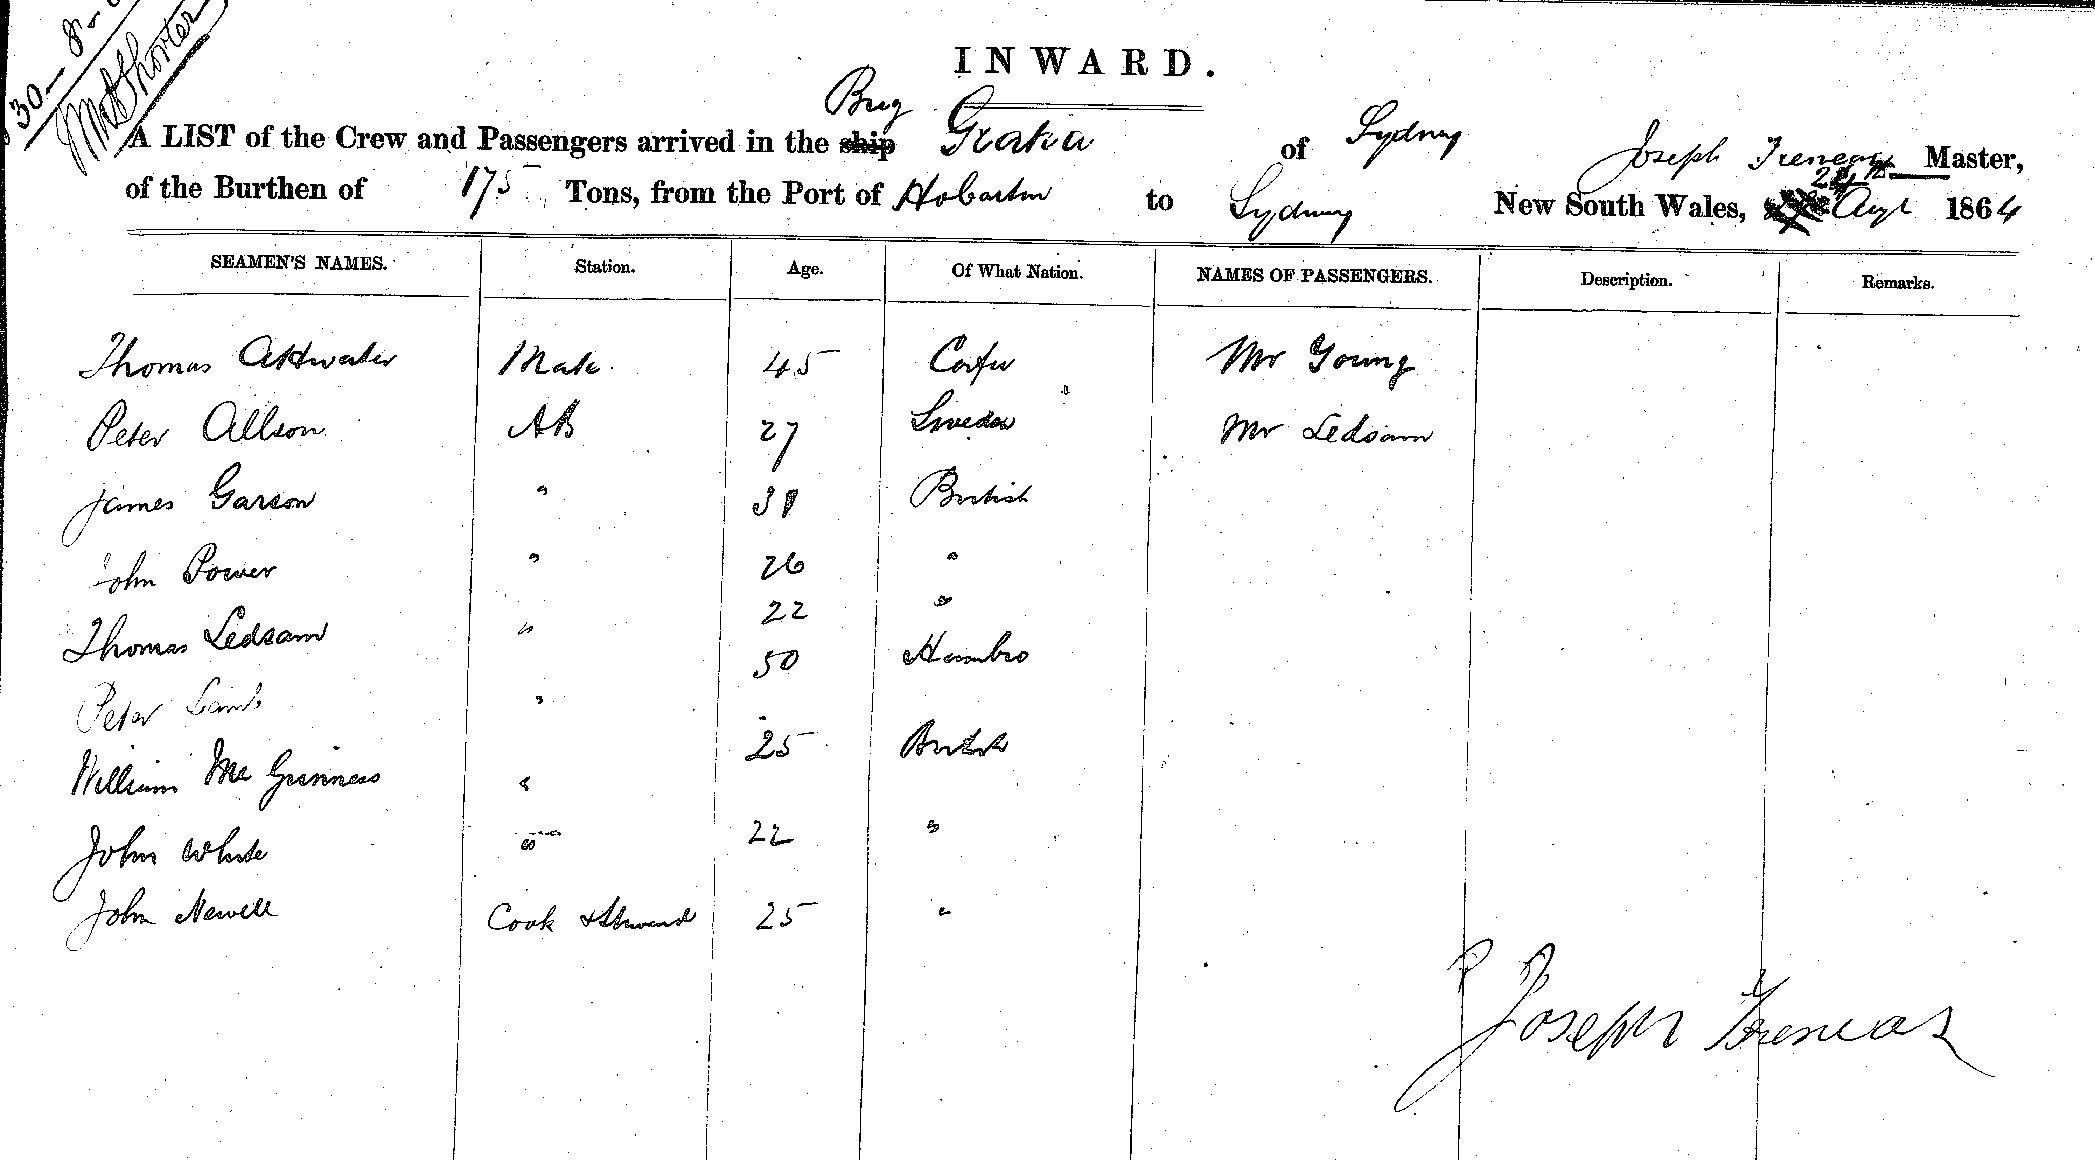 30-8-
INWARD.
Brig
A LIST of the Crew and Passengers arrived in the ship Gratia of Sydney Joseph Master,
of the Burthen of 175 Tons, from the Port of Hobarton to Sydney New South Wales, 24th Augt 1864
SEAMEN'S NAMES. Station. Age. Of What Nation. NAMES OF PASSENGERS. Description. Remarks.
Thomas Attwater Mate 45 Corfu Mr Young
Peter Allson AB 27 Sweden Mr Ledsam
James Garson " British
John Power " 26 "
Thomas Ledsam " 22 "
Peter " 50 Hambro
William Mc Ginness " 25 British
John White " 22 "
John Newell Cook & Steward 25 "
Joseph